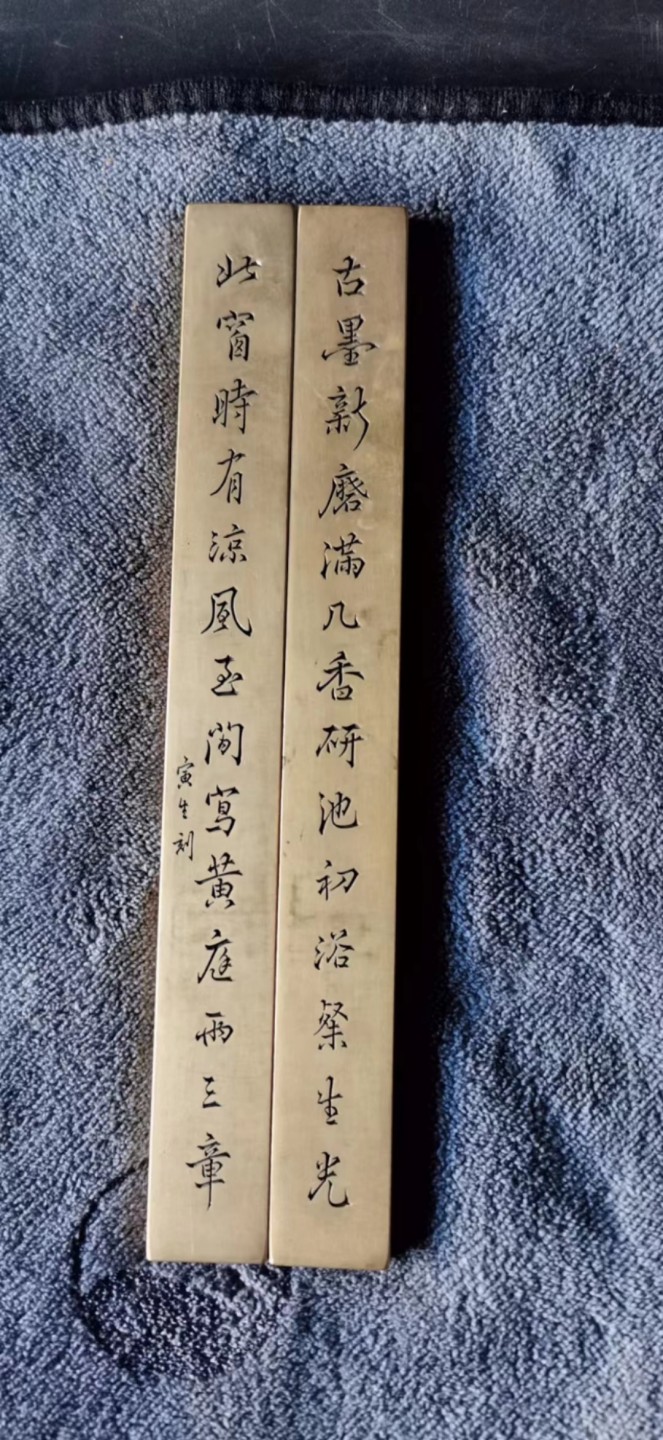 古墨新磨滿几香研池初浴粲生光
北窗時有涼風至閒寫黃庭兩三章
寅生刻